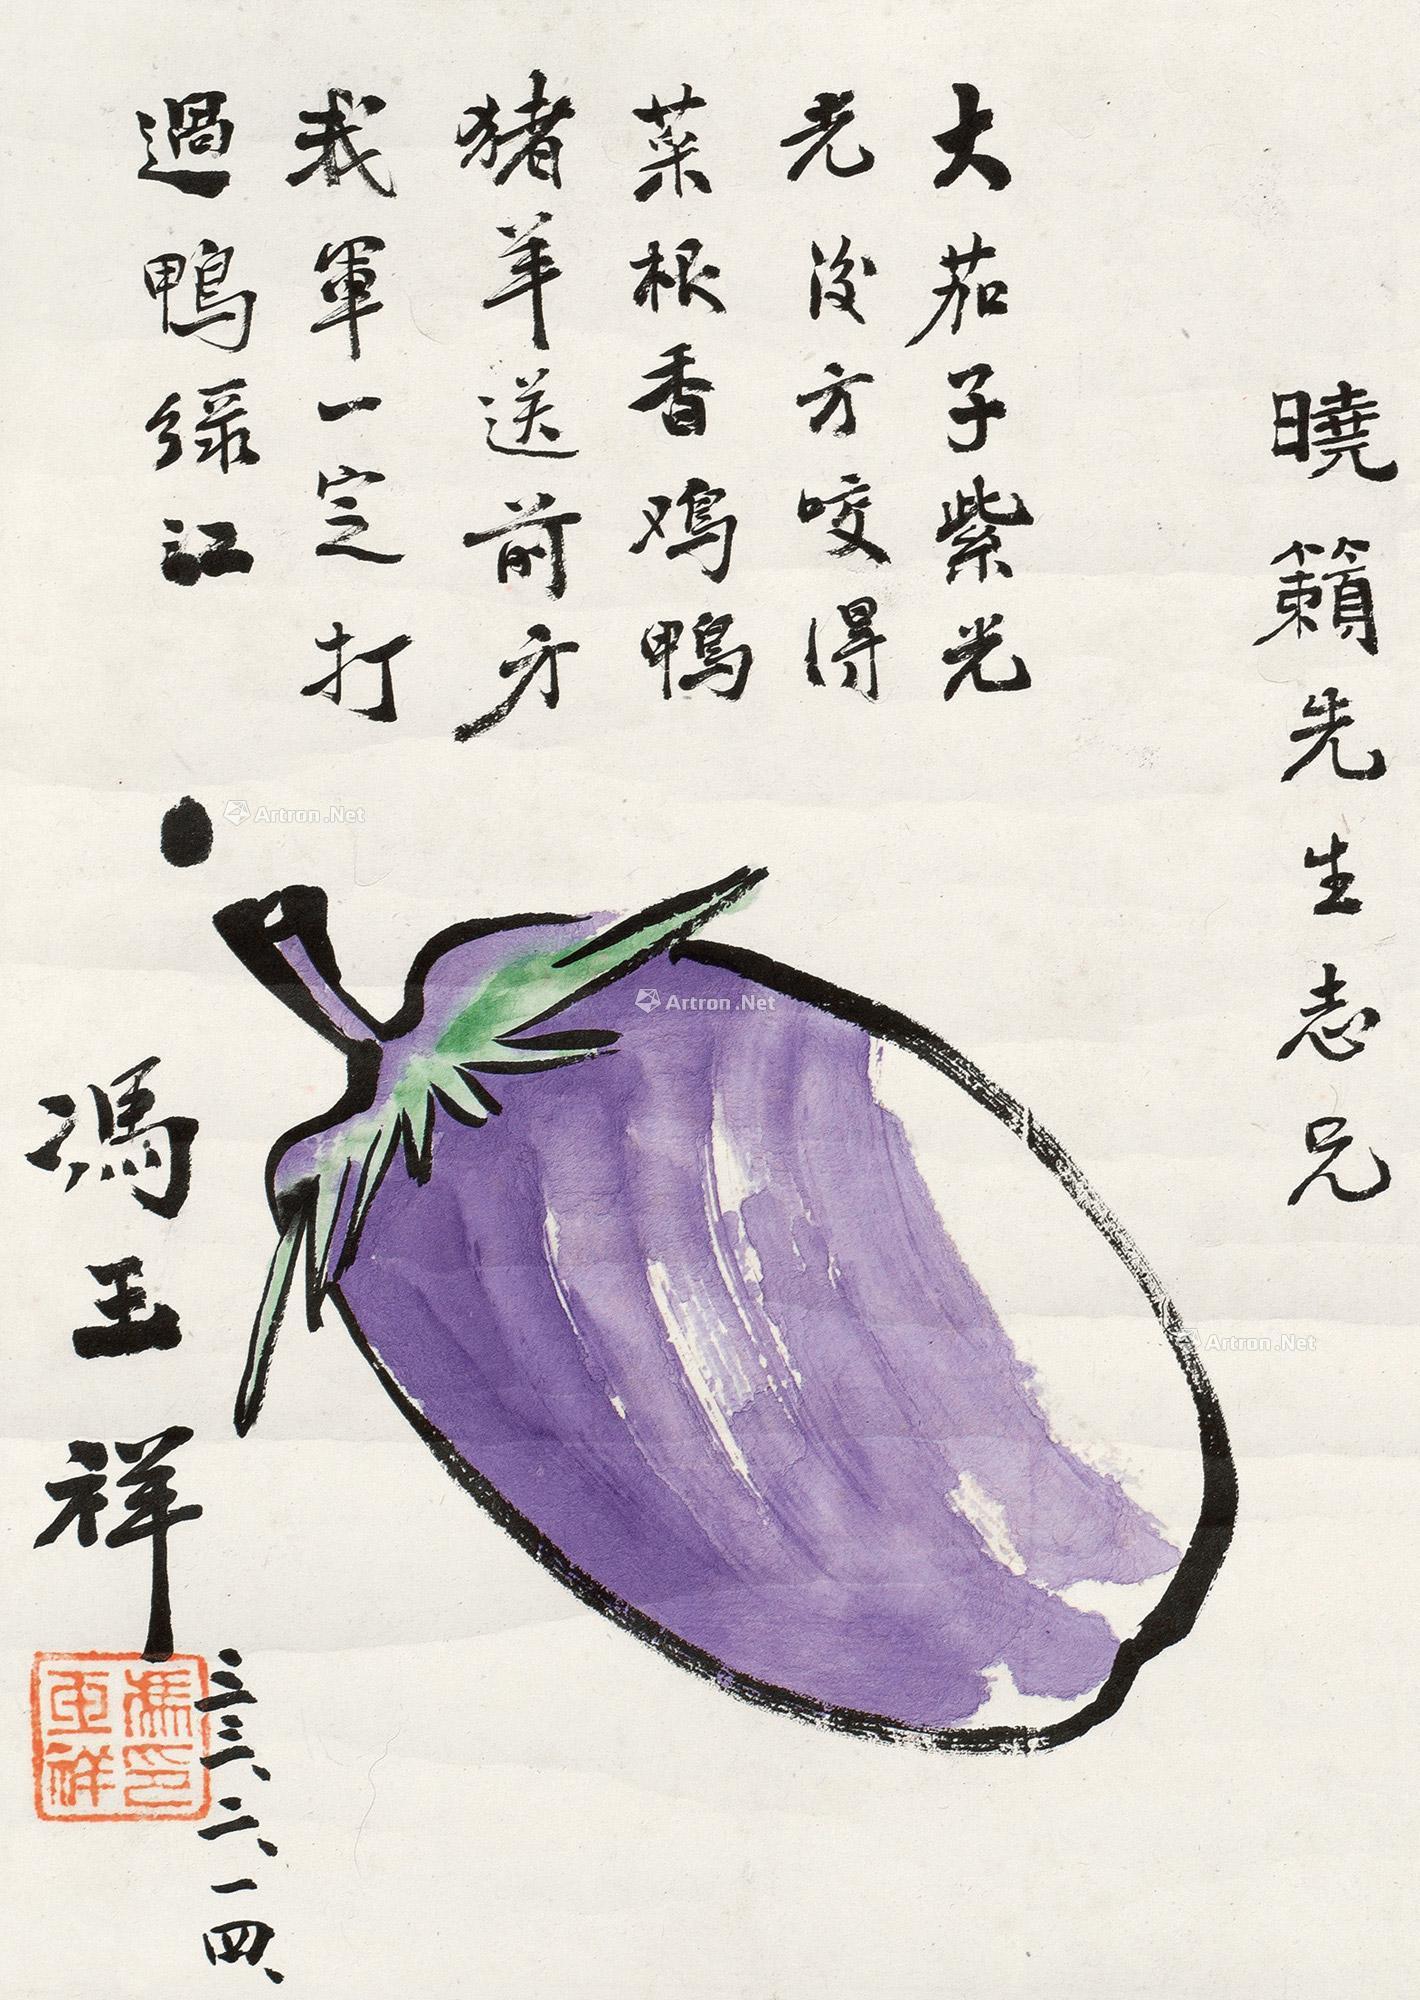 曉籟先生志兄
大茄子紫光
光後方咬得
菜根香鸡鴨
猪羊送前方
我軍一定打
過鴨绿江
馮玉祥
三三、二、一四、
馮玉祥印
Artron.Net
Artron.Net
Artron.Net